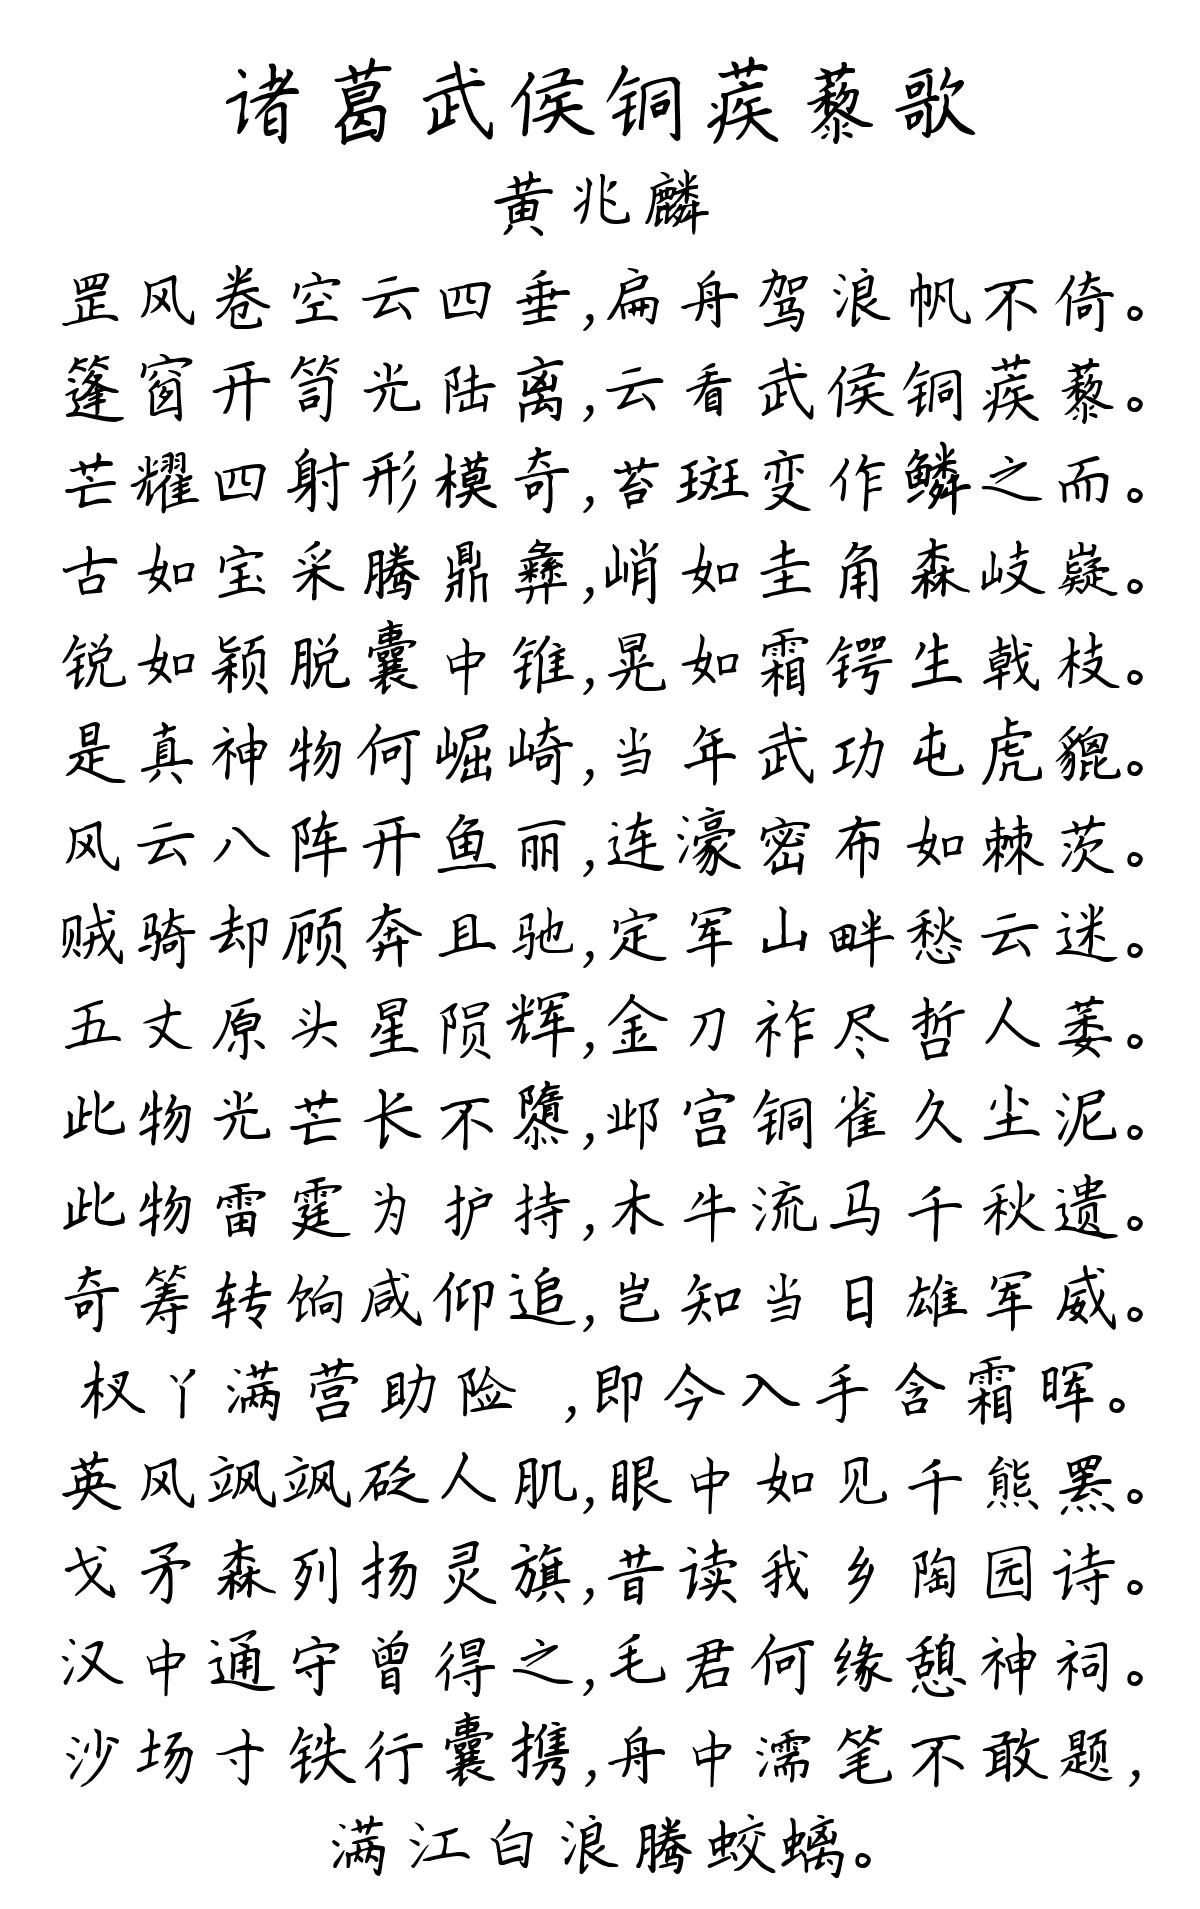 诸葛武侯铜蒺藜歌
黄兆麟
罡风卷空云四垂,扁舟驾浪帆不倚。
篷窗开笥光陆离,云看武侯铜蒺藜。
芒耀四射形模奇,苔斑变作鳞之而。
古如宝采腾鼎彝,峭如圭角森岐嶷。
锐如颖脱囊中锥,晃如霜锷生戟枝。
是真神物何崛崎,当年武功屯虎貔。
风云八阵开鱼丽,连濠密布如棘茨。
贼骑却顾奔且驰,定军山畔愁云迷。
五丈原头星陨辉,金刀祚尽哲人萎。
此物光芒长不隳,邺宫铜雀久尘泥。
此物雷霆为护持,木牛流马千秋遗。
奇筹转饷咸仰追,岂知当日雄军威。
杈丫满营助险 ,即今入手含霜晖。
英风飒飒砭人肌,眼中如见千熊罴。
戈矛森列扬灵旗,昔读我乡陶园诗。
汉中通守曾得之,毛君何缘憩神祠。
沙场寸铁行囊携,舟中濡笔不敢题,
满江白浪腾蛟螭。